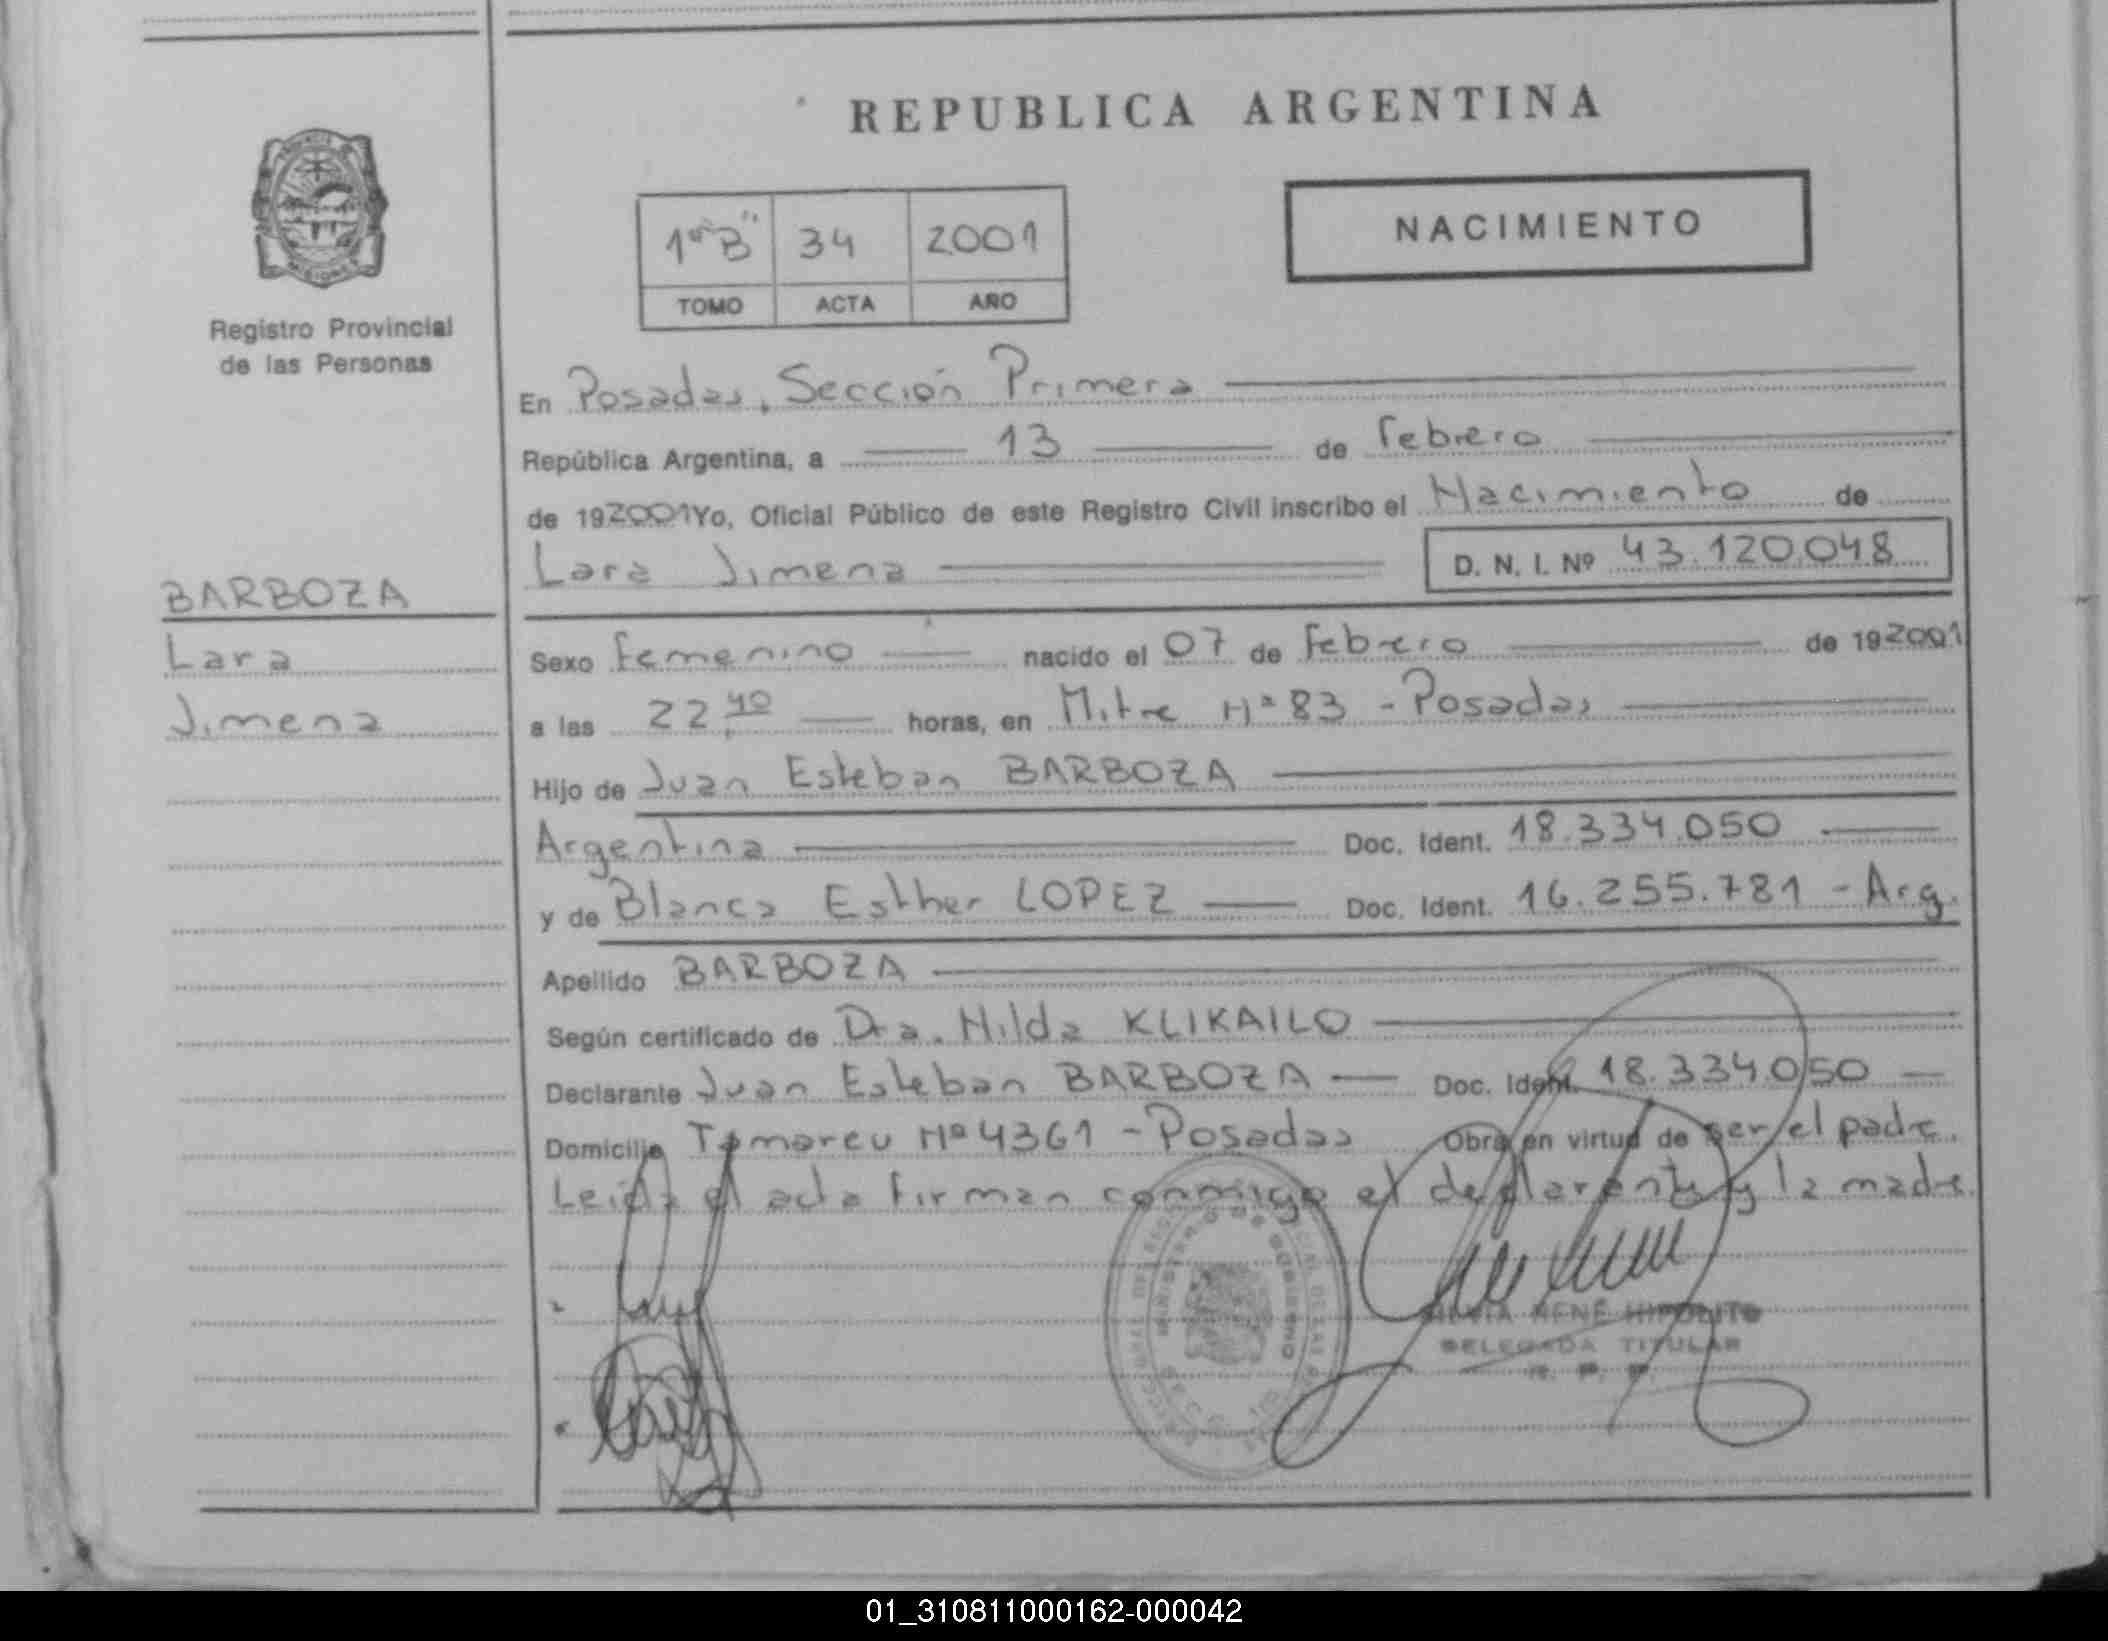 REPUBLICA ARGENTINA
NACIMIENTO
1º "B" 34 2001
TOMO ACTA AÑO
Registro Provincial
de las Personas
En Posadas, Sección Primera
República Argentina, a 13 de Febrero
de 192001 Yo, Oficial Público de este Registro Civil inscribo el Nacimiento de
Lara Jimena D. N. I. Nº 43.120.048
BARBOZA
Lara
Jimena
Sexo Femenino nacido el 07 de Febrero de 192001
a las 22 40 horas, en Mitre Nº 83 - Posadas
Hijo de Juan Esteban BARBOZA
Argentina Doc. Ident. 18.334.050
y de Blanca Esther LOPEZ Doc. Ident. 16.255.781 - Arg.
Apellido BARBOZA
Según certificado de Dra. Hilda KLIKAILO
Declarante Juan Esteban BARBOZA Doc. Ident. 18.334.050
Domicilio Tamareu Nº 4361 - Posadas Obra en virtud de ser el padre.
Leida el acta firman conmigo el declarante y la madre.
SILVIA RENÉ HIPOLITO
DELEGADA TITULAR
R. P. P.
01_310811000162-000042